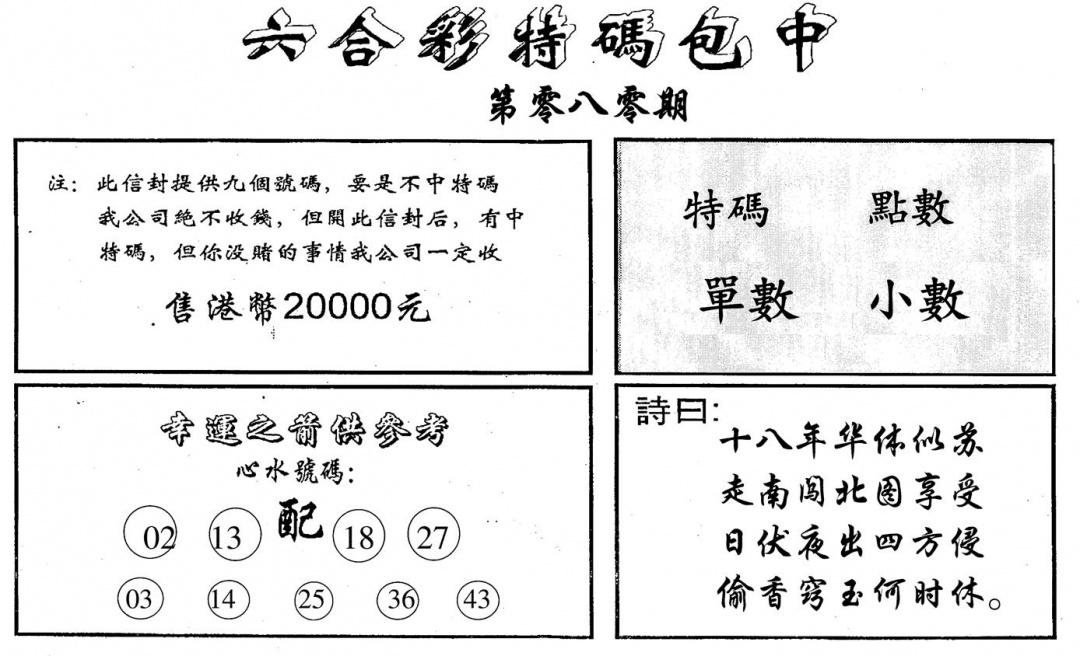 六合彩特碼包中
第零八零期
注：此信封提供九個號碼，要是不中特碼
我公司絕不收錢，但開此信封后，有中
特碼，但你没賭的事情我公司一定收
售港幣20000元
特碼 點數
單數 小數
幸運之箭供參考
心水號碼：
02 13 配 18 27
03 14 25 36 43
詩曰:
十八年华体似苏
走南闯北图享受
日伏夜出四方侵
偷香窍玉何时休。